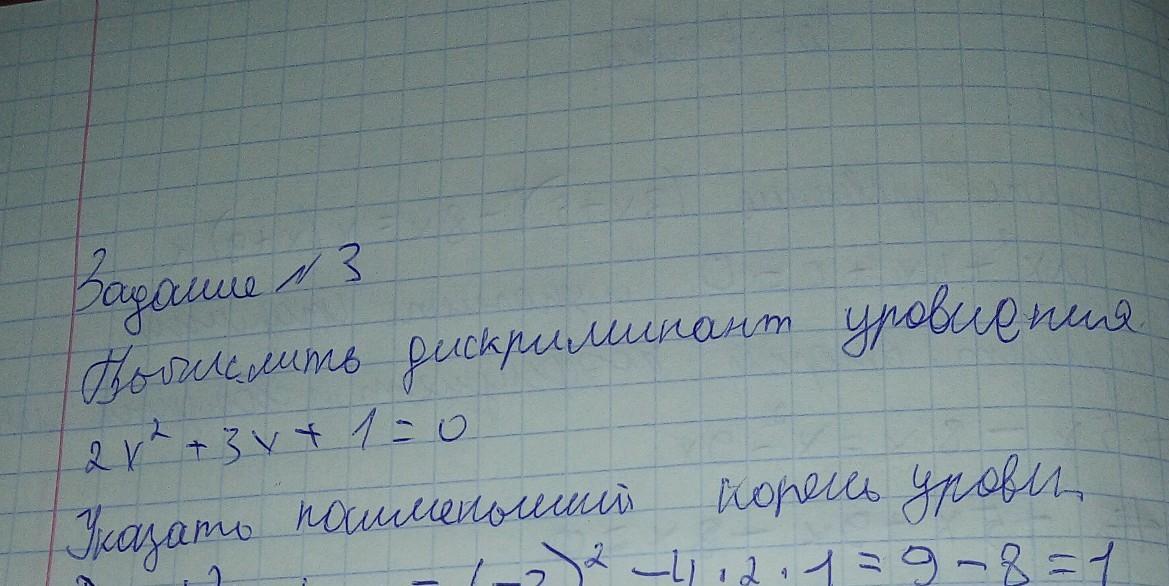 Задание N 3
Вычислить дискриминант уровнения
2x² + 3x + 1 = 0
Указать наименьший корень уровн.
= (-3)² - 4 · 2 · 1 = 9 - 8 = 1